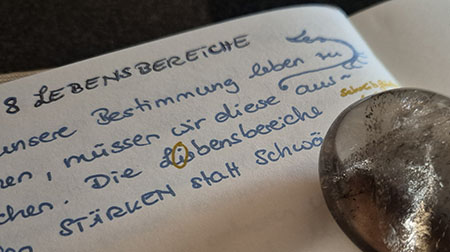 8 LEBENSBEREICHE
unsere Bestimmung leben zu
nen, müssen wir diese aus-
chen. Die Libensbereiche
STÄRKEN statt Schwä